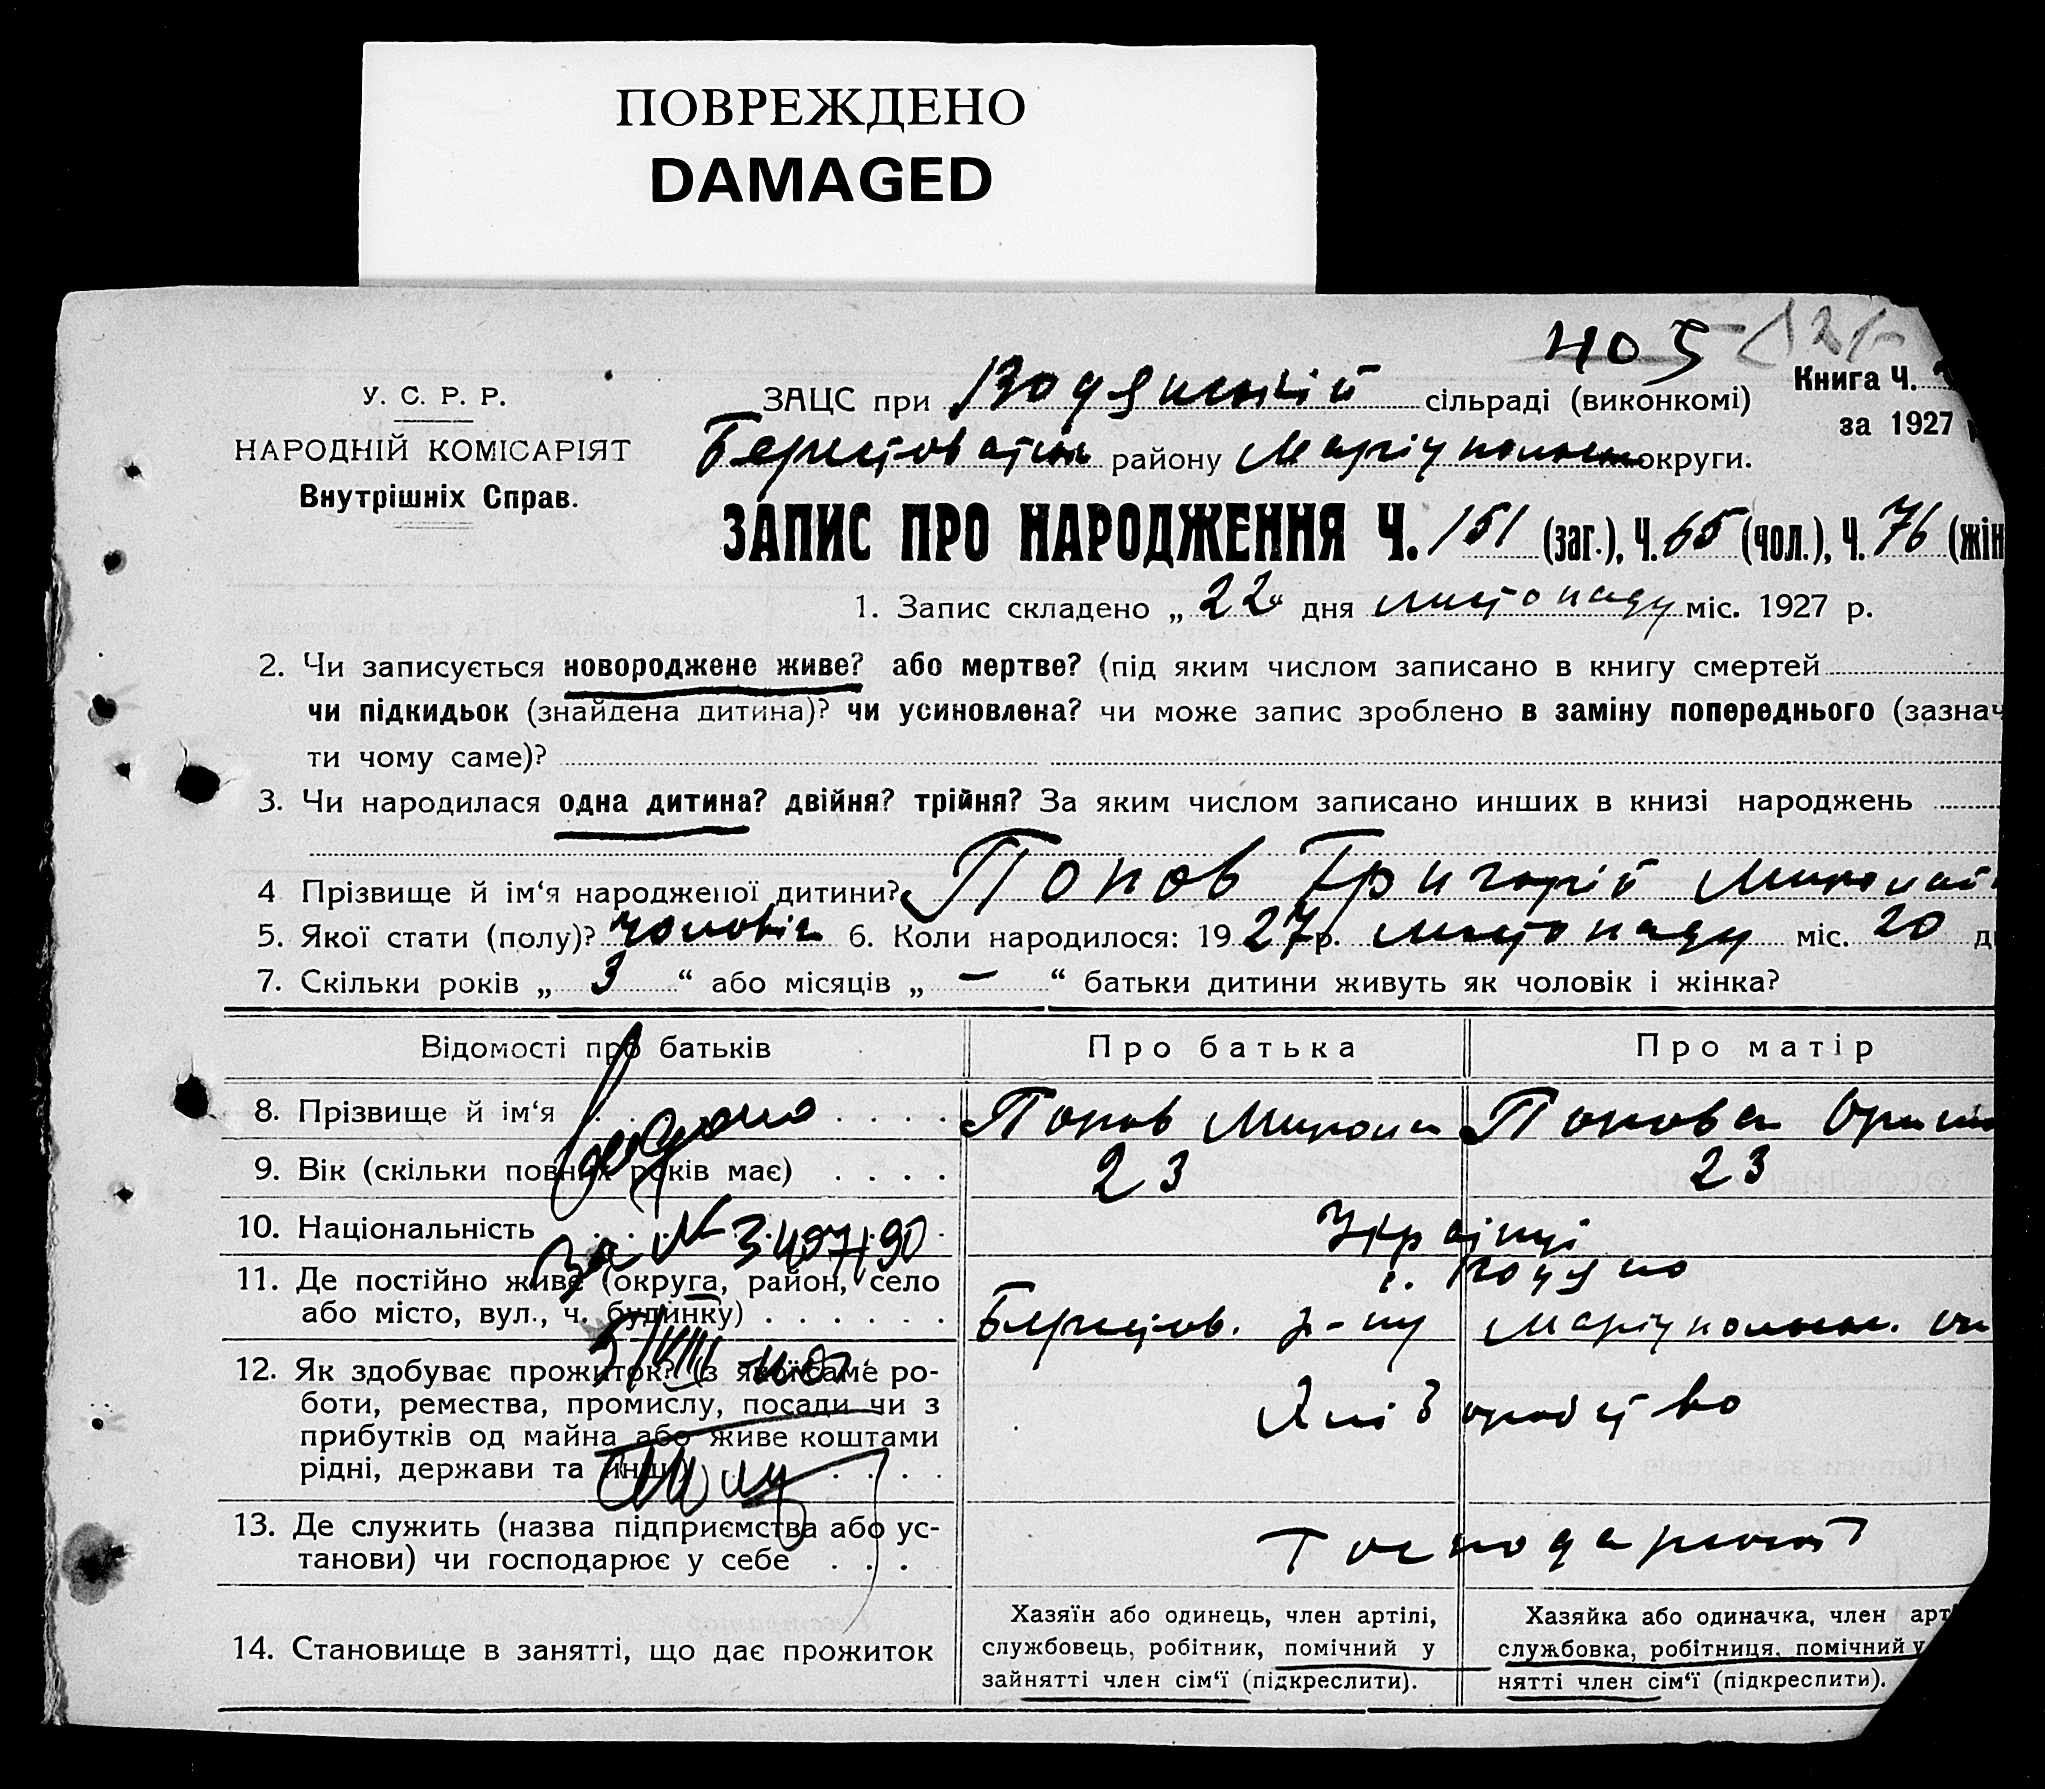 ПОВРЕЖДЕНО
DAMAGED
405
У. С. Р. Р.
НАРОДНІЙ КОМІСАРІЯТ
Внутрішніх Справ.
ЗАЦС при Водянській сільраді (виконкомі)
Книга Ч.
за 1927
району Маріупольськ округи.
ЗАПИС ПРО НАРОДЖЕННЯ Ч. 151 (заг.), Ч. 65 (чол.), Ч. 76 (жін
1. Запис складено „ 22 “ дня листопаду міс. 1927 р.
2. Чи записується новороджене живе? або мертве? (під яким числом записано в книгу смертей
чи підкидьок (знайдена дитина)? чи усиновлена? чи може запис зроблено в заміну попереднього (зазнач
ти чому саме)?
3. Чи народилася одна дитина? двійня? трійня? За яким числом записано инших в книзі народжень
4 Прізвище й ім‘я народженої дитини? Попов Григорій
5. Якої стати (полу)? чоловіч 6. Коли народилося: 1927 р. листопаду міс. 20
7. Скільки років „ 3 “ або місяців „ — “ батьки дитини живуть як чоловік і жінка?
Відомості про батьків Про батька Про матір
8. Прізвище й ім‘я Попов Микола Попова
9. Вік (скільки повних років має) 23 23
10. Національність Українці
11. Де постійно живе (округа, район, село
с. Водяно
або місто, вул., ч. будинку) Берестов. р-ну Маріупольськ.
12. Як здобуває прожиток? (з якої саме ро-
боти, ремества, промислу, посади чи з
прибутків од майна або живе коштами
рідні, держави та инш.)
Хліборобство
13. Де служить (назва підприємства або ус-
танови) чи господарює у себе
14. Становище в занятті, що дає прожиток
Хазяїн або одинець, член артілі,
службовець, робітник, помічний у
зайнятті член сім‘ї (підкреслити).
Хазяйка або одиначка, член арт
службовка, робітниця, помічний у
нятті член сім‘ї (підкреслити).